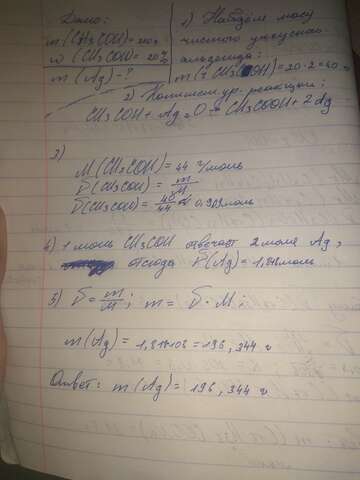 Дано:
m(CH3COH)=200г
w(CH3COH)=20%
m(Ag)-?
1) Найдём массу
чистого уксусного
альдегида:
m(CH3COH)=20·2=40г
2) Напишем ур. реакции:
CH3COH+Ag2O → CH3COOH+2Ag
3)
M(CH3COH)=44 г/моль
ν(CH3COH)=m/M
ν(CH3COH)=40/44≈0,909моль
4) 1 моль CH3COH отвечает 2 моля Ag,
отсюда ν(Ag)=1,818моль
5) ν=m/M; m=ν·M;
m(Ag)=1,818·108=196,344 г
Ответ: m(Ag)=196,344 г